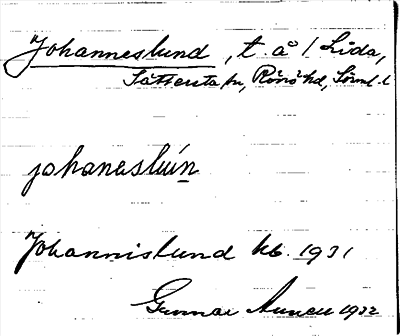 Johanneslund, t. å 1 Lida,
Sättersta sn, Rönö hd, Söml. l
johaneslún
Johannislund kb. 1931
Gunnar 1932